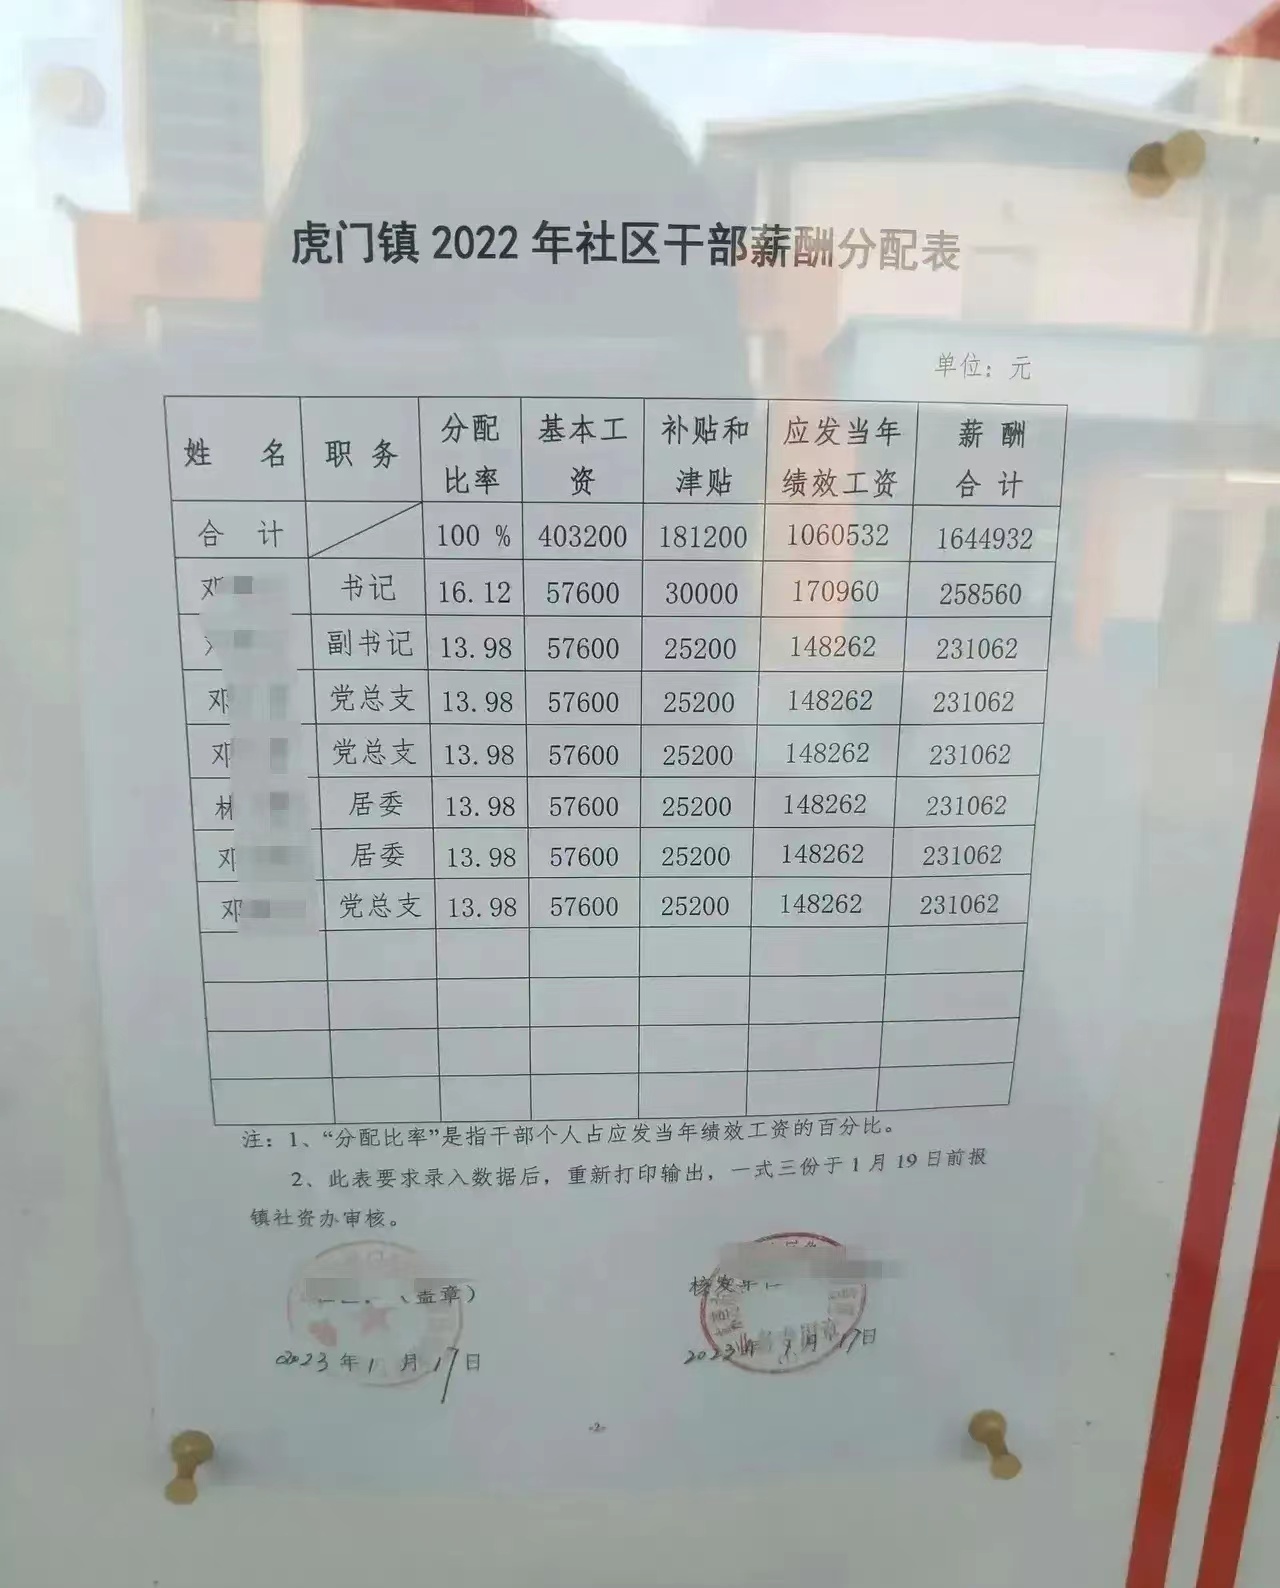 虎门镇 2022 年社区干部薪酬分配表
单位：元
姓 名 职 务 分配比率 基本工资 补贴和津贴 应发当年绩效工资 薪酬合计
合 计 100 % 403200 181200 1060532 1644932
邓 书记 16.12 57600 30000 170960 258560
副书记 13.98 57600 25200 148262 231062
邓 党总支 13.98 57600 25200 148262 231062
邓 党总支 13.98 57600 25200 148262 231062
林 居委 13.98 57600 25200 148262 231062
邓 居委 13.98 57600 25200 148262 231062
邓 党总支 13.98 57600 25200 148262 231062
注：1、“分配比率”是指干部个人占应发当年绩效工资的百分比。
2、此表要求录入数据后，重新打印输出，一式三份于 1 月 19 日前报
镇社资办审核。
（盖章） 核发单位
2023 年 1 月 17 日 2023 年 1 月 17 日
-2-